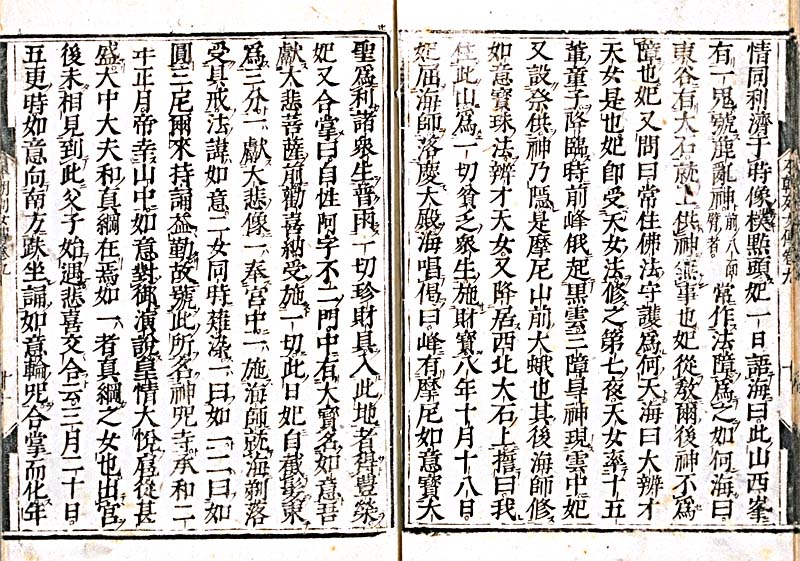 情同利濟于時像模點頭妃一日語海曰此山西峯
有一鬼號麁亂神前八師臂者常作法障為之如何海曰
東谷有大石就上供神無事也妃從敎爾後神不為
障也妃又問曰常住佛法守護為何天海曰大辨才
天女是也妃即受天女法修之第七夜天女率十五
童子降臨時前峰俄起黑雲三障神現雲中妃
又設祭供神乃隱是摩尼山前大蛾也其後海師修
如意寶珠法辨才天女又降居西北大石上誓曰我
住此山為一切貧乏衆生施財寶八年十月十八日
妃屈海師落慶大殿海唱偈曰峰有摩尼如意寶大
聖爲利諸衆生普雨一切珍財具入此地者得豊樂
妃又合掌曰自性阿字不二門中有大寶名如意吾
獻大悲菩薩前勸喜納受施一切此日妃自截髮束
為三分一獻大悲像一奉宮中一施海師就海剃落
受具戒法諱如意二女同時薙染一曰如一二曰如
圓三尼爾來持誦益勤故號此所名神呪寺承和二
年正月帝幸山中如意對御演說皇情大悅扈從甚
盛大中大夫和真綱在焉如一者真綱之女也出宮
後未相見到此父子始遇悲喜交合云三月二十日
五更時如意向南方趺坐誦如意輪呪合掌而化年